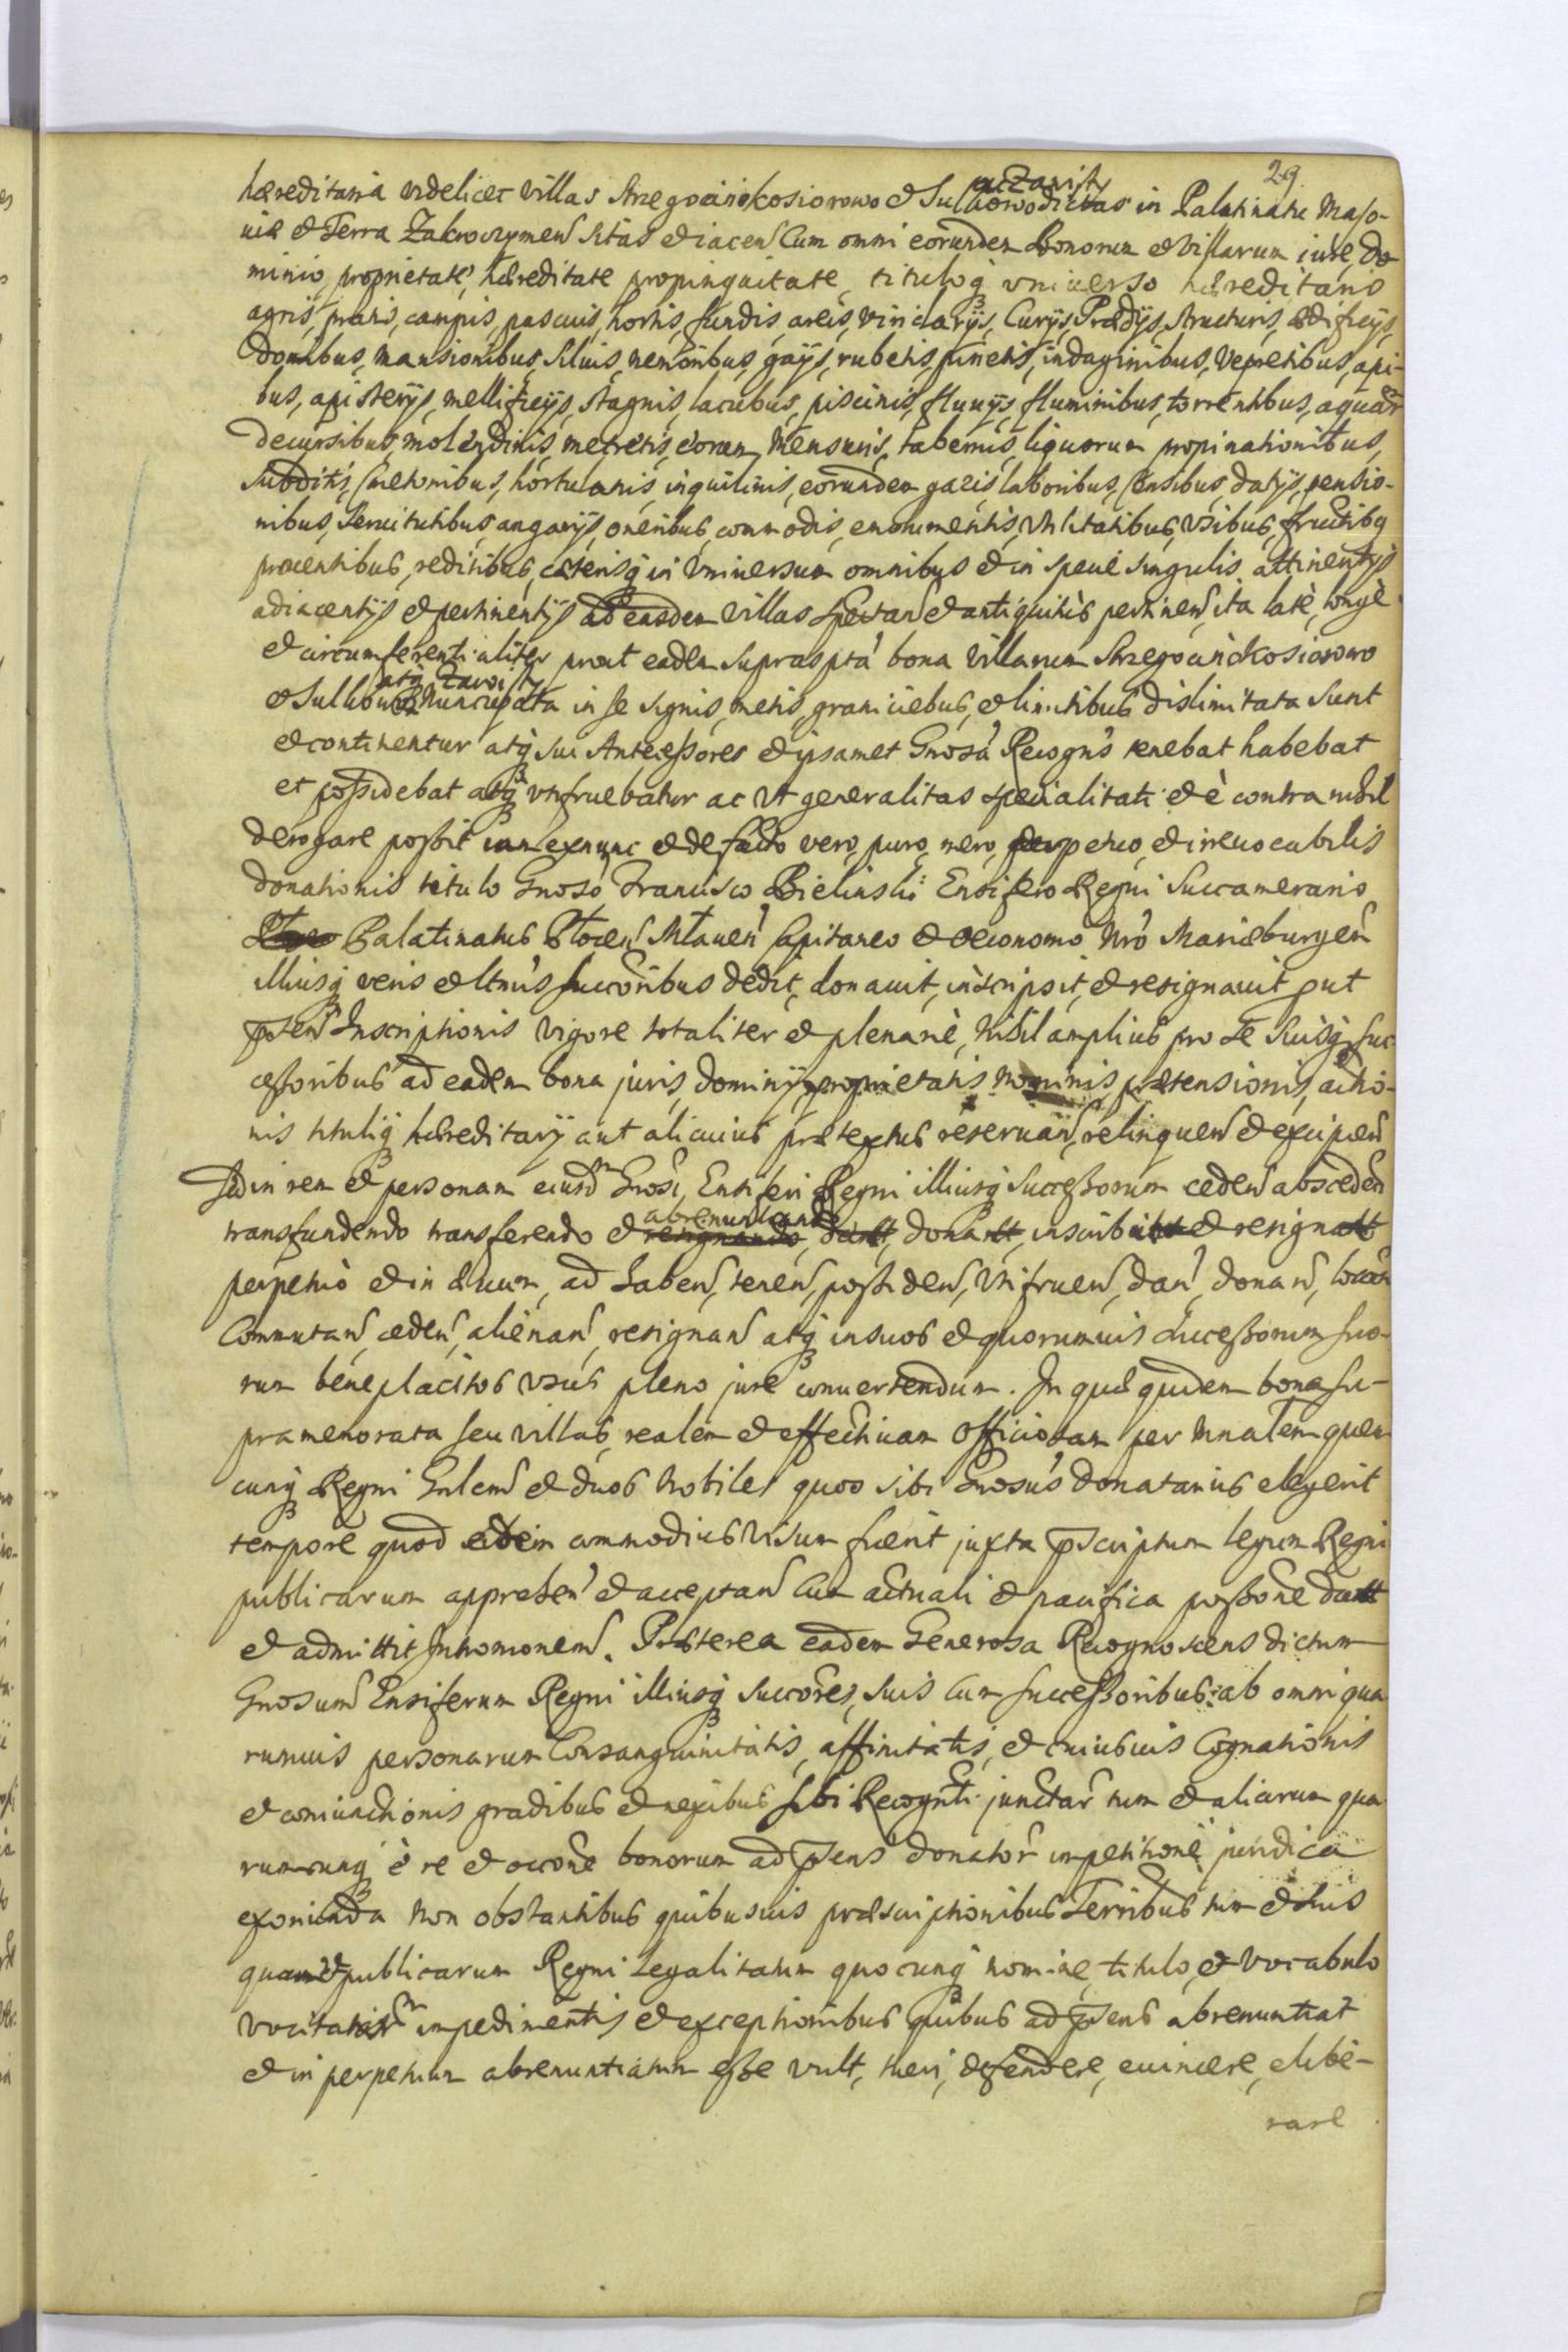 29.
hæreditaria videlicet villas Strzegocin Kosiorowo et Sulkowo ac Zawisty dictas in Palatinatu Maso-
uiæ et Terra Zakroczymen sitas et iacen Cum omni eorundem Bonorum et villarum iure, do
minio, proprietate, hæreditate propinquitate, tituloq vniuerso hæreditario
agris, pratis, campis, pascuis, hortis, fundis, areis, viridarijs, Curijs, Prædijs, structuris, ædificijs,
domibus, mansionibus, siluis, nemoribus, gajis, rubetis, pinetis, indaginibus, vepretibus, api-
bus, apisterijs, mellificijs, stagnis, lacubus, piscinis, fluuijs, fluminibus, torrentibus, aquar
decursibus, molendinis, metretis, eorum mensuris, tabernis, liquorum propinationibus,
subditis, Cmetonibus, hortulanis, inquilinis, eorundem gazis, laboribus, Censibus, datijs, pensio-
nibus, seruitutibus, angarijs, oneribus, commodis, emolumentis, vtilitatibus, vsibus, fructibq
prouentibus, reditibus, cæterisq in vniuersum omnibus et in specie singulis attinentijs
adiacentijs et pertinentijs ad easdem villas spectan et antiquitùs pertinen, ita latè, longè
et circumferentialiter prout eadem suprascpta bona villarum Strzegocin Kosiorowo
et Sulkowo atq Zawisty Nuncupata in se signis, metis, graniciebus, et limitibus dislimitata sunt
et continentur atq sui Antecessores et ipsamet Gnosa Recogns tenebat habebat
et possidebat atq vtifruebatur ac vt generalitas specialitati et è contra nihil
derogare possit iam exnunc et de facto vero, puro, mero, perpetuo, et irreuocabilis
donationis titulo Gnoso Francisco Bielinski Ensifero Regni Succamerario
Palatinatus Płocen Młauen Capitaneo et Oeconomo Nro Mariæburgen
illiusq veris et ltmis succoribus dedit, donauit, inscripsit, et resignauit put
pnten Inscriptionis vigore totaliter et plenariè, Nihil amplius pro se suisq suc
cessoribus ad eadem bona juris, dominij, proprietatis Nominis, prætensionis, actio-
nis tituliq hæreditarij aut alicuius prætextus reseruan, relinquen et excipien
Sed in rem et personam eiusdm Gnosi, Ensiferi Regni illiusq Successorum ceden absceden
transfundendo transferendo et resignando abrenuntiando, dant, donatt, inscribitt et resignatt
perpetuò et in æuum, ad haben, tenen, possiden, vtifruen, dan, donan, locan
Commutan, ceden, alienan, resignan atq in suos et quorumuis Successorum suo-
rum beneplacitos vsus pleno jure conuertendum. In quæ quidem bona su-
pramemorata seu villas, realem et effectiuam Officiosam per Mnalem quem
cunq Regni Gnlem et duos Nobiles quos sibi Gnosus donatarius elegerit
tempore quod eidem commodius visum fuerit juxta pscriptum legum Regni
publicarum apprehen et acceptan Cum actuali et pacifica possone datt
et admittit Intromonem. Præterea eadem Generosa Recognoscens dictum
Gnosum Ensiferum Regni illiusq succores, suis cum successoribus, ab omni quo
rumuis personarum Consanguinitatis, affinitatis, et cuiusuis Cognationis
et coniunctionis gradibus et nexibus sibi Recognti junctar tum et aliarum qua
rumcunq è re et occone bonorum ad psens donator impetitione juridica
exoriunda Non obstantibus quibusuis præscriptionibus Terribus tum et suis
quam et publicarum Regni Legalitatum quocunq nomine, titulo et vocabulo
vocitatarm impedimentis et exceptionibus quibus ad psens abrenuntiat
et in perpetuum abrenuntiatum esse vult, tueri, defendere, euincere, elibe-
rare